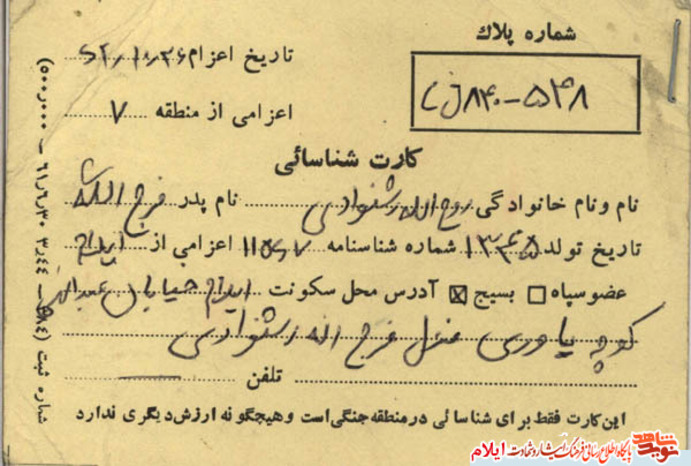 شماره پلاك
تاریخ اعزام ۶۲،۱۰،۲۶
اعزامی از منطقه ۷
کارت شناسائی
نام و نام خانوادگی روح اله رشنوادی نام پدر فرج اله
تاریخ تولد ۱۳۴۵ شماره شناسنامه اعزامی از ایلام
عضو سپاه □ بسیج ☒ آدرس محل سکونت ایلام خیابان
کوچه یاوری منزل فرج اله رشنوادی
تلفن
این کارت فقط برای شناسائی در منطقه جنگی است و هیچگونه ارزش دیگری ندارد
شماره ثبت
نوید شاهد
پایگاه اطلاع رسانی فرهنگ ایثار و شهادت ایلام